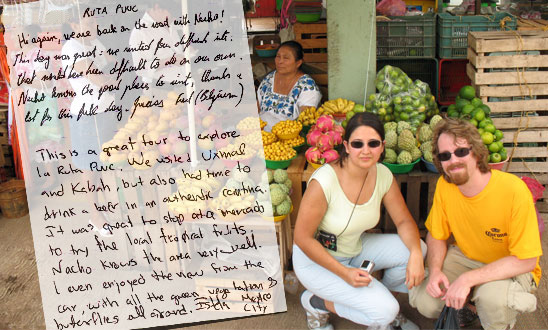 RUTA PUUC
Hi again, we are back on the road with Nacho!
This day was great: we visited four difficult sites.
That would have been difficult to do on our own.
Nacho knows the good places to visit, thanks a
lot for this full day - Fred (Belgium)
This is a great tour to explore
la Ruta Puuc. We visited Uxmal
and Kabah, but also had time to
drink a beer in an authentic cantina.
It was great to stop at a mercado
to try the local tropical fruits.
Nacho knows the area very well.
I even enjoyed the view from the
car, with all the green vegetation &
butterflies all around. Mexico
City
Corona